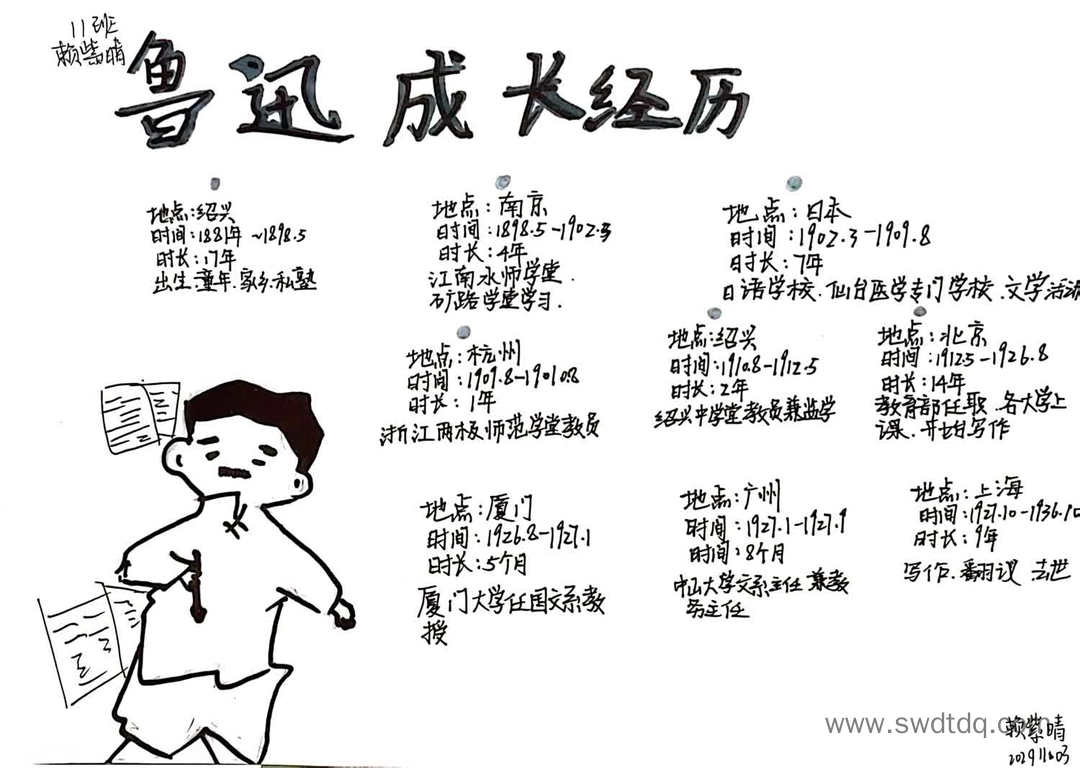 11班
赖紫晴
鲁迅 成长经历
地点:绍兴
时间:1881年~1898.5
时长:17年
出生.童年.家乡.私塾
地点:南京
时间:1898.5-1902.3
时长:4年
江南水师学堂.
矿路学堂学习.
地点:日本
时间:1902.3-1909.8
时长:7年
日语学校.仙台医学专门学校.文学活动
地点:杭州
时间:1909.8-19010.8
时长:1年
浙江两极师范学堂教员
地点:绍兴
时间:1910.8-1912.5
时长:2年
绍兴中学堂教员兼监学
地点:北京
时间:1912.5-1926.8
时长:14年
教育部任职.各大学上
课.开始写作
地点:厦门
时间:1926.8-1927.1
时长:5个月
厦门大学任国文系教
授
地点:广州
时间:1927.1-1927.9
时间:8个月
中山大学文系主任 兼教
务主任
地点:上海
时间:1927.10-1936.10
时长:9年
写作.翻议 去世
www.swdtdq.com
赖紫晴